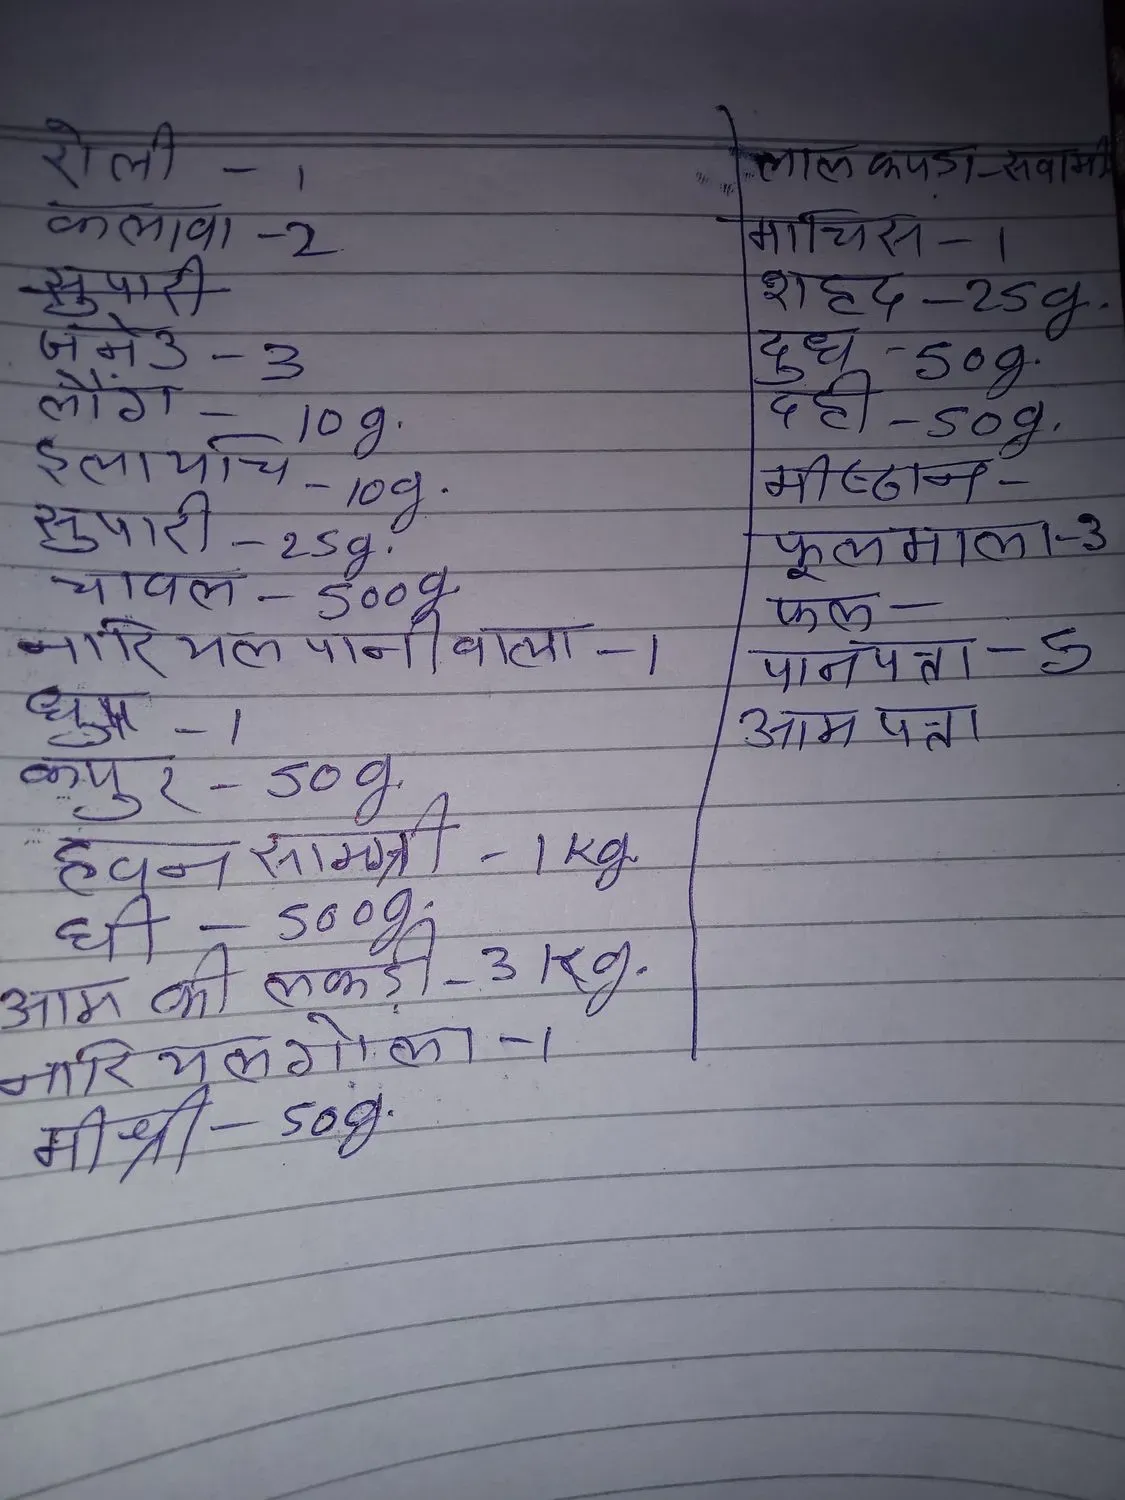 रोली - 1
कलावा - 2
सुपारी
जनेउ - 3
लौंग - 10g.
इलायचि - 10g.
सुपारी - 25g.
चावल - 500g
नारियल पानी वाला - 1
धुप - 1
कपुर - 50g.
हवन सामग्री - 1kg.
घी - 500g.
आम की लकड़ी - 3 Kg.
नारियल गोला - 1
मीश्री - 50g.
लाल कपड़ा - सवामी
माचिस - 1
शहद - 25g.
दुध - 50g.
दही - 50g.
मीष्ठान -
फूल माला - 3
फल -
पान पत्ता - 5
आम पत्ता